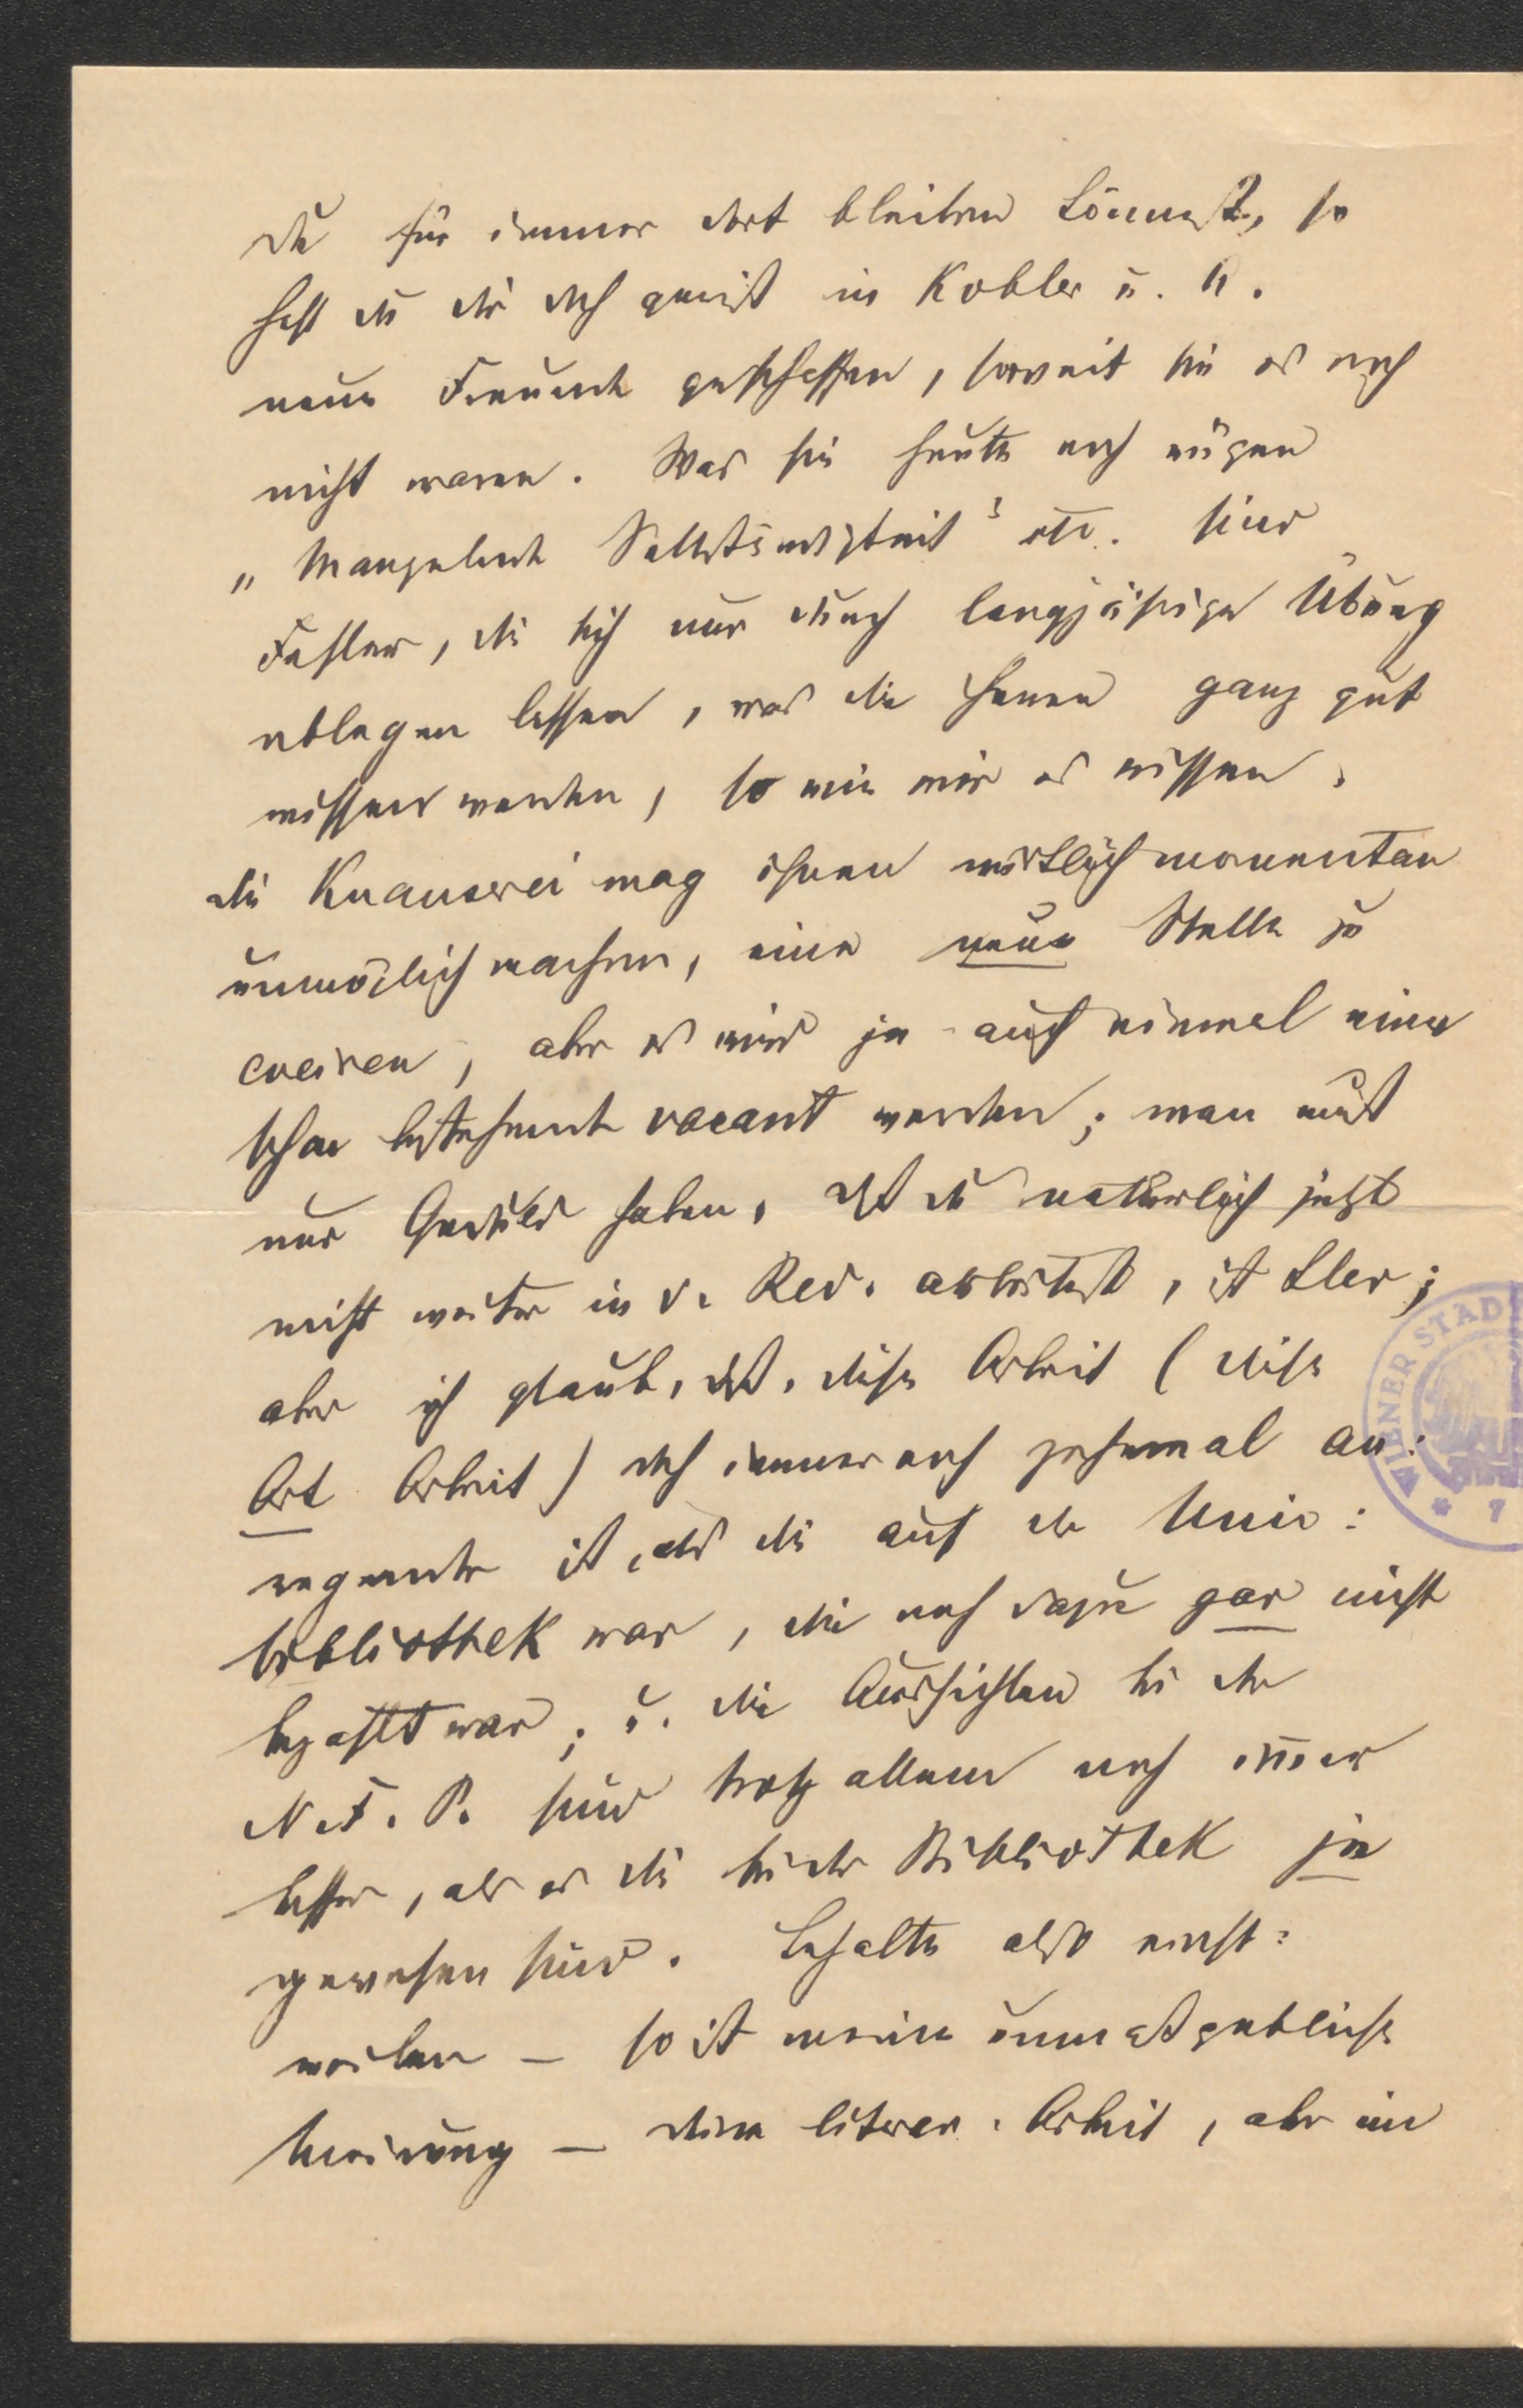 du für immer dort bleiben könntest, so
hast du dir doch gewiß in Kobler u. R.
neue Freunde geschaffen, soweit sie es noch
nicht waren. Was sie heute noch rügen
„Mangelnde Selbständigkeit" etc. sind
Fehler, die sich nur durch langjährige Übung
ablegen lassen, was die Herren ganz gut
wissen werden, so wie wir es wissen.
die Knauserei mag ihnen wirklich momentan
unmöglich machen, eine neue Stelle zu
creiren, aber es wird ja auch einmal eine
schon bestehende vacant werden; man muß
nur Geduld haben. Daß du natürlich jetzt
nicht weiter in d. Red. arbeitest, ist klar;
aber ich glaube, daß diese Arbeit (diese
Art Arbeit) doch immer noch zehnmal an:
regender ist, als die auf der Univ:
bibliothek war, die noch dazu gar nicht
bezahlt war; u. die Aussichten bei der
N. F. P. sind trotz allem noch immer
besser, als es die bei der Bibliothek je
gewesen sind. Behalte also einst:
weilen – so ist meine unmaßgebliche
Meinung – deine literar. Arbeit, aber im
WIENER STAD